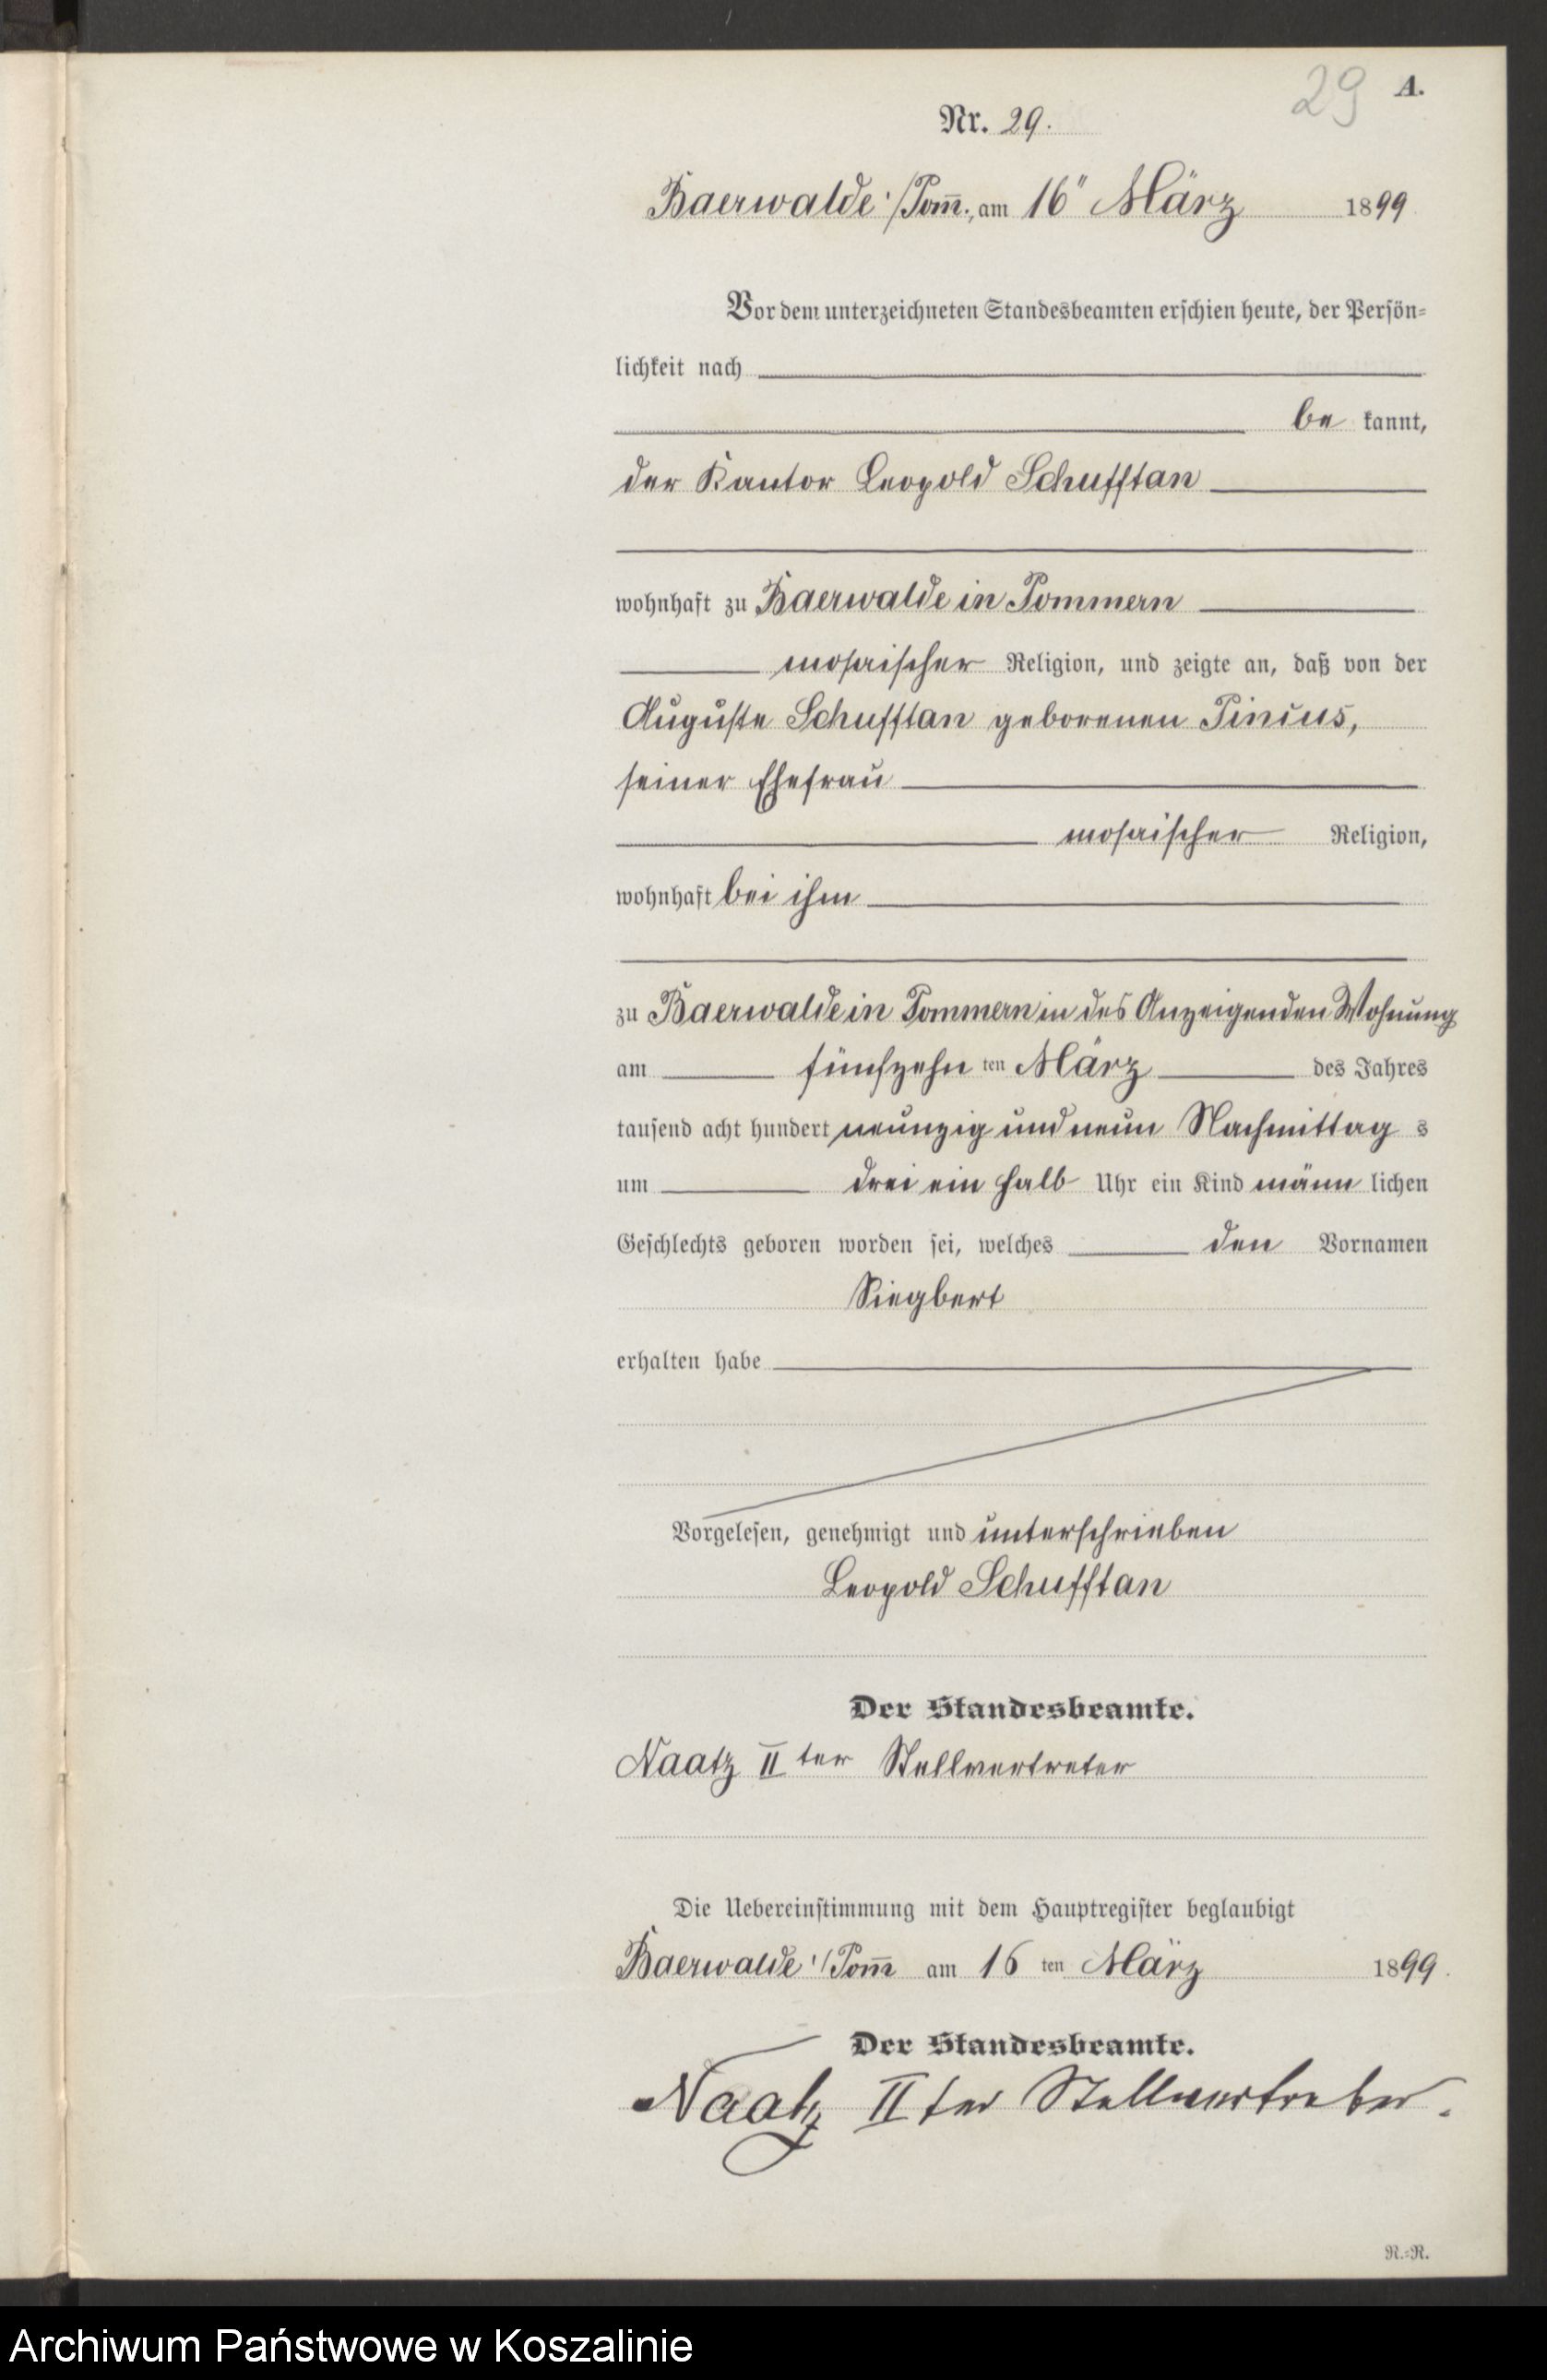 29 A.
Nr. 29.
Baerwalde i/Pom̅., am 16" März 1899
Vor dem unterzeichneten Standesbeamten erschien heute, der Persön-
lichkeit nach
be kannt,
der Kantor Leopold Schufftan
wohnhaft zu Baerwalde in Pommern
mosaischer Religion, und zeigte an, daß von der
Auguste Schufftan geborenen Pincus,
seiner Ehefrau
mosaischer Religion,
wohnhaft bei ihm
zu Baerwalde in Pommern in des Anzeigenden Wohnung
am fünfzehn ten März des Jahres
tausend acht hundert neunzig und neun Nachmittag s
um drei ein halb Uhr ein Kind männ lichen
Geschlechts geboren worden sei, welches den Vornamen
Siegbert
erhalten habe
Vorgelesen, genehmigt und unterschrieben
Leopold Schufftan
Der Standesbeamte.
Naatz II ter Stellvertreter
Die Uebereinstimmung mit dem Hauptregister beglaubigt
Baerwalde i/Pom̅ am 16 ten März 1899.
Der Standesbeamte.
Naatz II ter Stellvertreter.
R.-R.
Archiwum Państwowe w Koszalinie